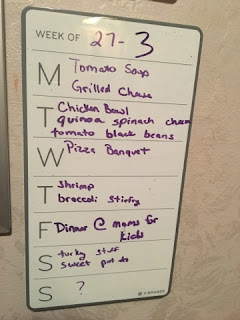 WEEK OF 27-3
M Tomato Soup
Grilled Cheese
T Chicken Bowl
quinoa spinach
tomato black beans
W Pizza Banquet
T shrimp
broccoli stirfry
F Dinner @ moms for
kids
S turky
sweet
S ?